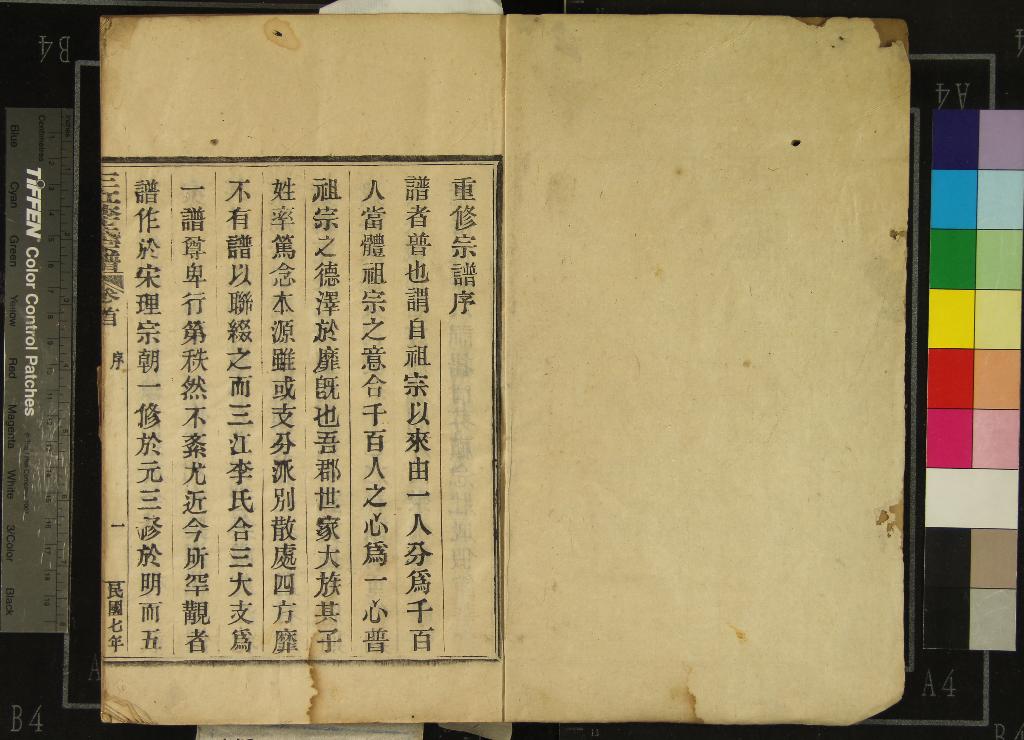 重修宗譜序
譜者普也謂自祖宗以來由一人分爲千百
人當體祖宗之意合千百人之心爲一心普
祖宗之德澤於靡旣也吾郡世家大族其子
姓率篤念本源雖或支分派別散處四方靡
不有譜以聯綴之而三江李氏合三大支爲
一譜尊卑行第秩然不紊尤近今所罕觀者
譜作於宋理宗朝一修於元三修於明而五
三江李氏宗譜
卷首
序
一
民國七年
Inches
Centimetres
TIFFEN Color Control Patches
Blue
Cyan
Green
Yellow
Red
Magenta
White
3/Color
Black
B4
A4
A4
B4